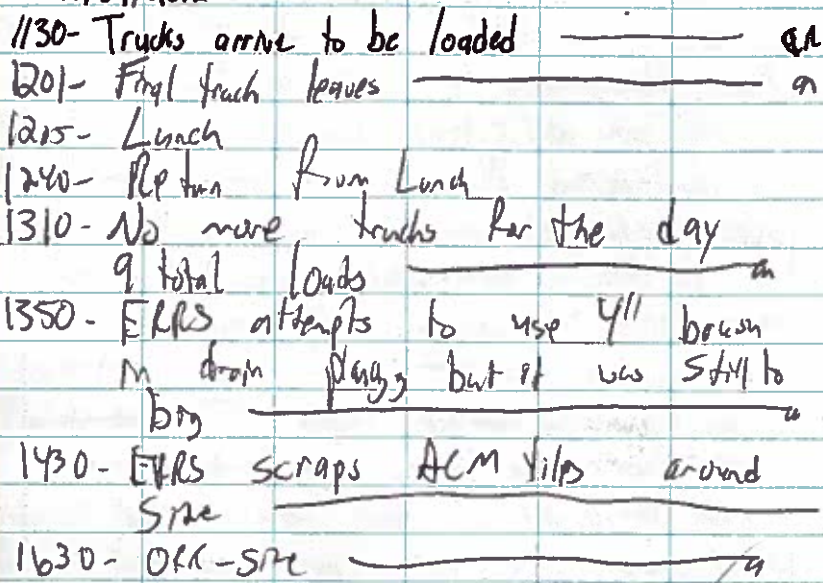 1130- Trucks arrive to be loaded
1201- Final truck leaves
1205- Lunch
1240- Return from Lunch
1310- No more trucks for the day
9 total loads
1350- ERRS attempts to use 4" brush
in drain but it was still to
big
1430- ERRS scraps ACM around
Site
1630- Off-Site